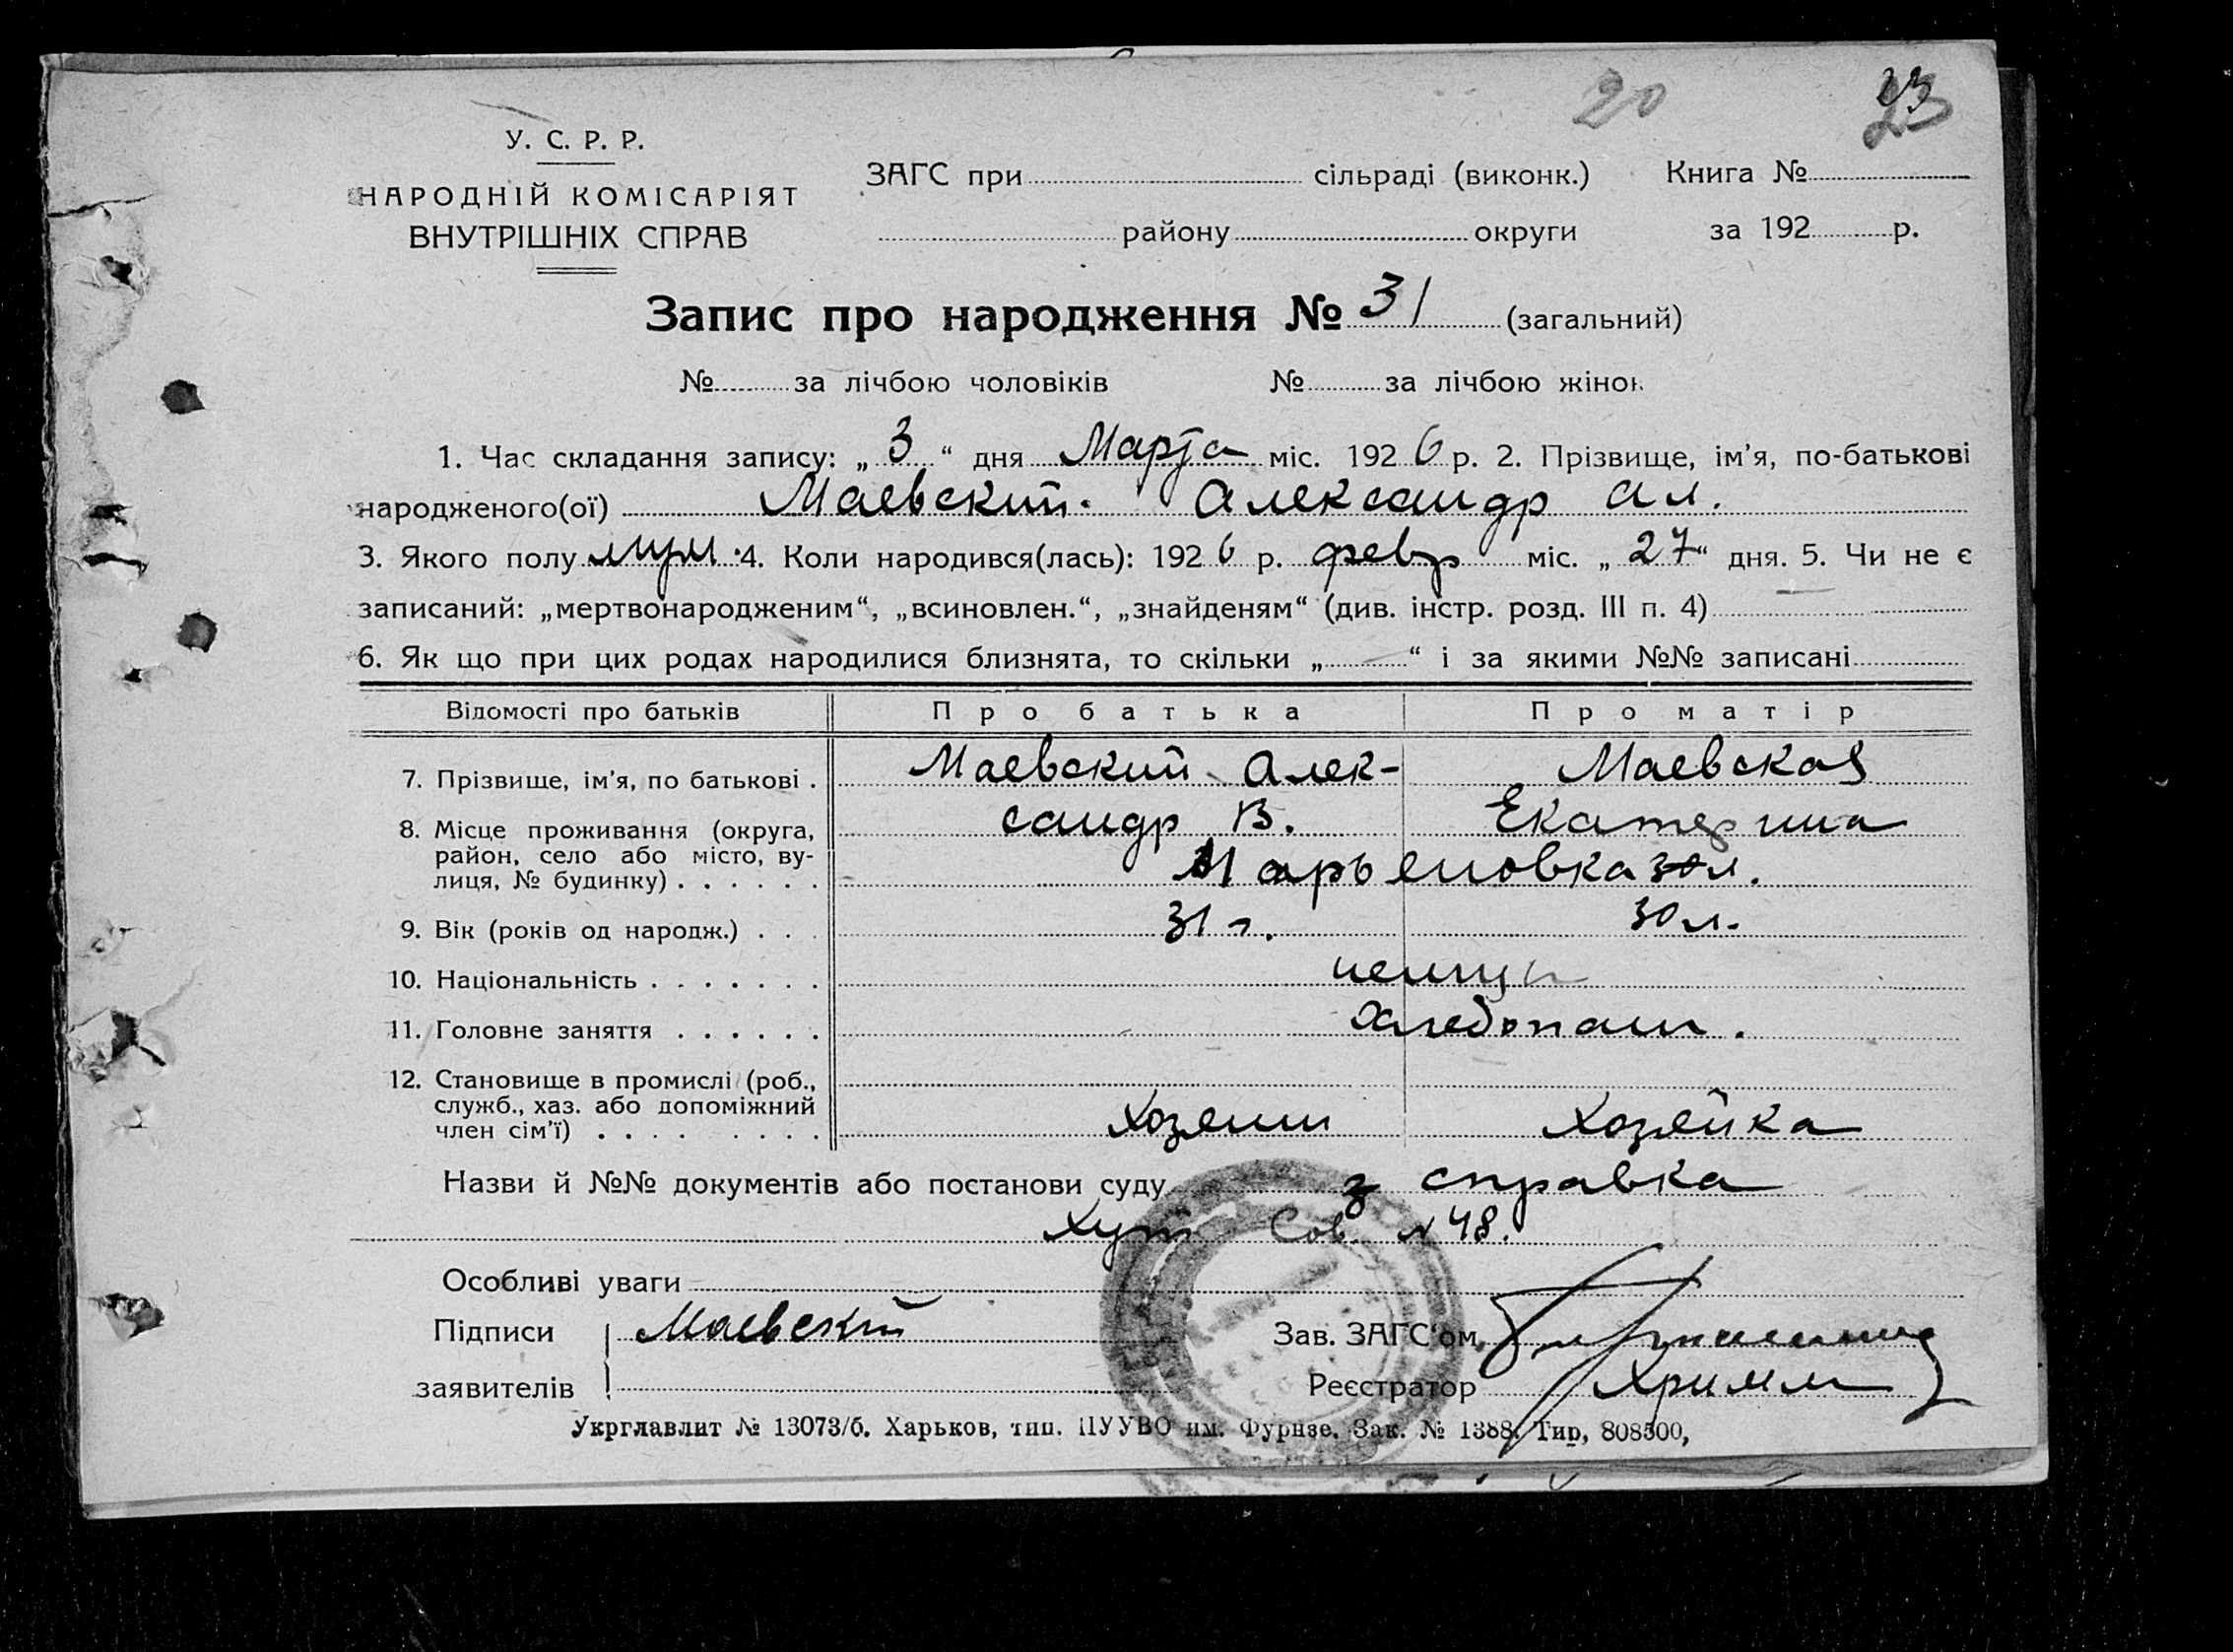 20 23
У. С. Р. Р.
НАРОДНІЙ КОМІСАРІЯТ
ВНУТРІШНІХ СПРАВ
ЗАГС при сільраді (виконк.) Книга №
району округи за 192 р.
Запис про народження № 31 (загальний)
№ за лічбою чоловіків № за лічбою жінок
1. Час складання запису: „ 3 “ дня Марта міс. 192 6 р. 2. Прізвище, ім'я, по-батькові
народженого(ої) Маевский. Александр Ал.
3. Якого полу муж. 4. Коли народився(лась): 192 6 р. февр міс. „ 27 “ дня. 5. Чи не є
записаний: „мертвонародженим“, „всиновлен.“, „знайденям“ (див. інстр. розд. III п. 4)
6. Як що при цих родах народилися близнята, то скільки „ “ і за якими №№ записані
Відомості про батьків Про батька Про матір
7. Прізвище, ім'я, по батькові . Маевский Алек- Маевская
сандр В. Екатерина
8. Місце проживання (округа,
район, село або місто, ву-
лиця, № будинку) . . . . . . Марьеновка
9. Вік (років од народж.) . . . 31 г. 30 л.
10. Національність . . . . . . . немцы
11. Головне заняття . . . . . . Хлебопаш.
12. Становище в промислі (роб.,
служб., хаз. або допоміжний
член сім'ї) . . . . . . . . Хозяин Хозяйка
Назви й №№ документів або постанови суду справка
Хут Сов. № 48.
Особливі уваги
Підписи Маевский Зав. ЗАГС'ом
заявителів Реєстратор
Укрглавлит № 13073/б. Харьков, тип. ПУУВО им. Фрунзе. Зак. № 1388. Тир, 808500,